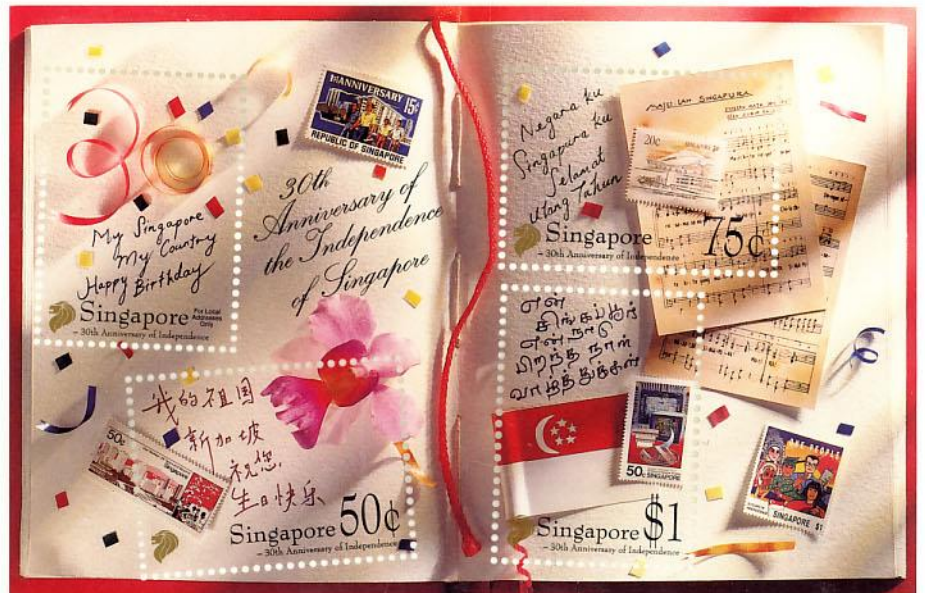 1st ANNIVERSARY 15¢
REPUBLIC OF SINGAPORE
30th
Anniversary of
the Independence
of Singapore
My Singapore
My Country
Happy Birthday
Singapore
For Local
Addresses
Only
– 30th Anniversary of Independence
我的祖国
新加坡
祝您
生日快乐
50c
Singapore
Singapore 50¢
– 30th Anniversary of Independence
Negara ku
Singapura ku
Selamat
Ulang Tahun
MAJULAH SINGAPURA
20c
Singapore 75¢
– 30th Anniversary of Independence
என்
சிங்கப்பூர்
என் நாடு
பிறந்த நாள்
வாழ்த்துக்கள்
50c SINGAPORE
ONE PEOPLE
SINGAPORE $1
Singapore $1
– 30th Anniversary of Independence